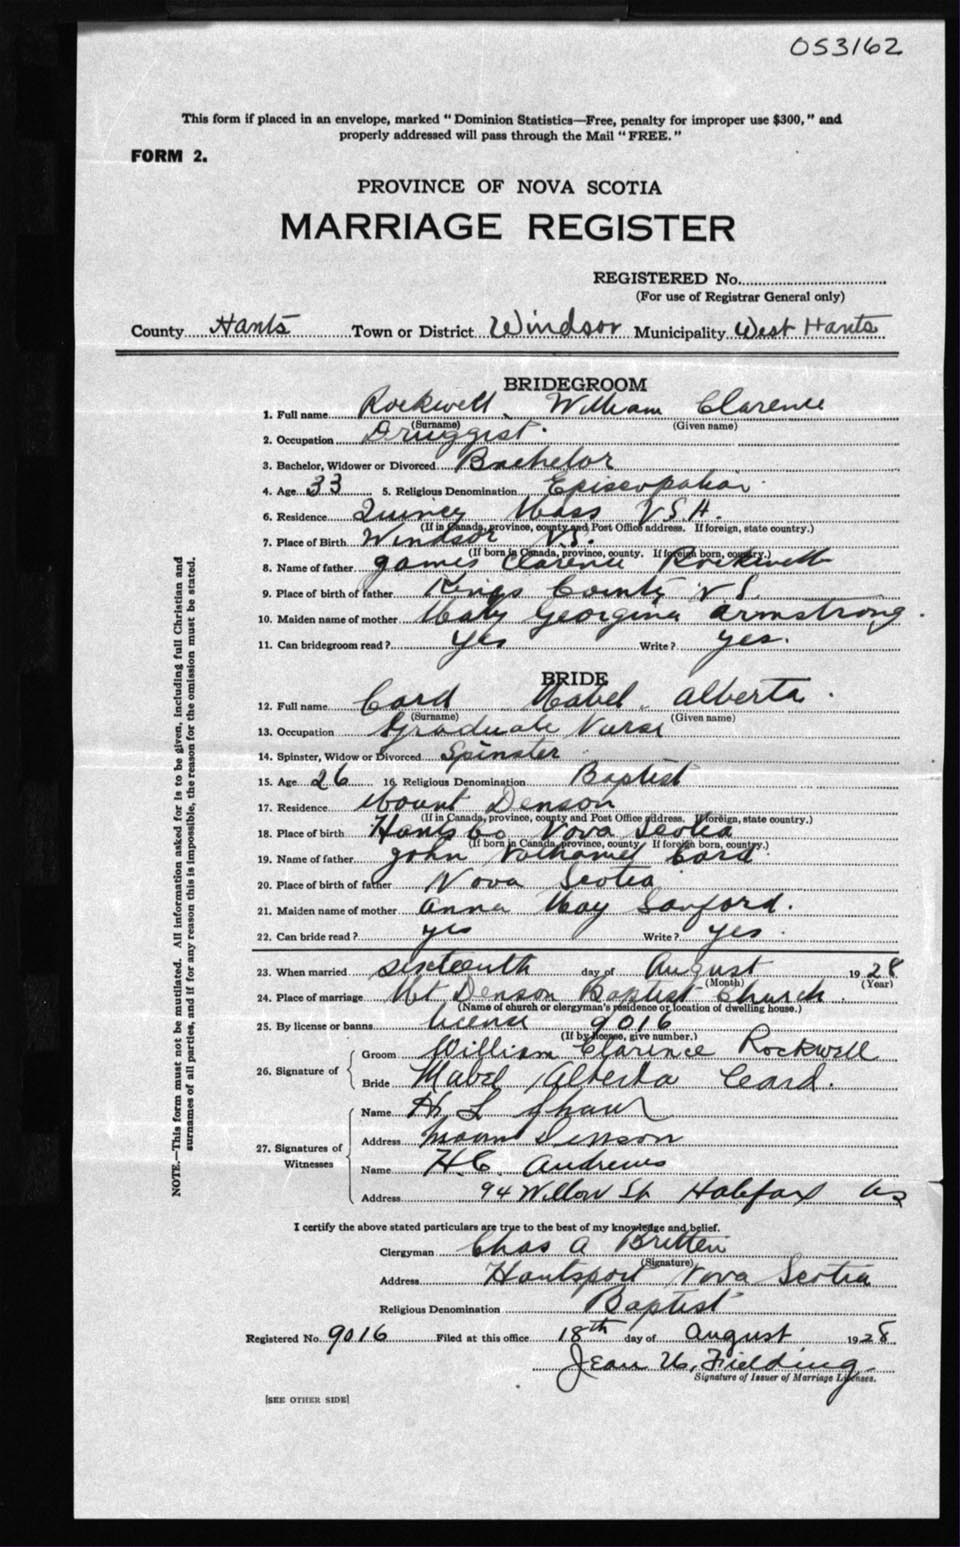 053162
This form if placed in an envelope, marked "Dominion Statistics—Free, penalty for improper use $300," and
properly addressed will pass through the Mail "FREE."
FORM 2.
PROVINCE OF NOVA SCOTIA
MARRIAGE REGISTER
REGISTERED No.
(For use of Registrar General only)
County Hants Town or District Windsor Municipality West Hants
BRIDEGROOM
1. Full name Rockwell, William Clarence
(Surname) (Given name)
2. Occupation Druggist.
3. Bachelor, Widower or Divorced Bachelor
4. Age 33 5. Religious Denomination Episcopalian
6. Residence Quincy Mass U.S.A.
(If in Canada, province, county and Post Office address. If foreign, state country.)
7. Place of Birth Windsor N.S.
(If born in Canada, province, county. If foreign born, country.)
8. Name of father James Clarence Rockwell
9. Place of birth of father Kings County N S
10. Maiden name of mother Mary Georgina Armstrong.
11. Can bridegroom read? Yes Write? yes.
BRIDE
12. Full name Card Mabel Alberta.
(Surname) (Given name)
13. Occupation Graduate Nurse
14. Spinster, Widow or Divorced Spinster
15. Age 26 16. Religious Denomination Baptist
17. Residence Mount Denson
(If in Canada, province, county and Post Office address. If foreign, state country.)
18. Place of birth Hants Co Nova Scotia
(If born in Canada, province, county. If foreign born, country.)
19. Name of father John Nathaniel Card
20. Place of birth of father Nova Scotia
21. Maiden name of mother Anna May Sanford.
22. Can bride read? yes Write? yes.
23. When married sixteenth day of August 1928
(Month) (Year)
24. Place of marriage Mt Denson Baptist Church.
(Name of church or clergyman's residence or location of dwelling house.)
25. By license or banns license 9016
(If by license, give number.)
26. Signature of
Groom William Clarence Rockwell
Bride Mabel Alberta Card.
27. Signatures of Witnesses
Name H L Shaw
Address Mount Denson
Name H.C. Andrews
Address 94 Willow St. Halifax NS
I certify the above stated particulars are true to the best of my knowledge and belief.
Clergyman Chas A Britten
(Signature)
Address Hantsport Nova Scotia
Religious Denomination Baptist
Registered No. 9016 Filed at this office 18th day of August 1928
Jean W. Fielding.
Signature of Issuer of Marriage Licenses.
[SEE OTHER SIDE]
NOTE.—This form must not be mutilated. All information asked for is to be given, including full Christian and
surnames of all parties, and if for any reason this is impossible, the reason for the omission must be stated.